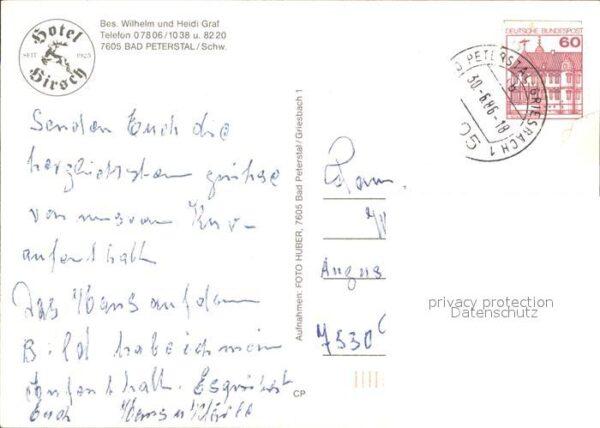 Hotel
SEIT 1925
Hirsch
Bes. Wilhelm und Heidi Graf
Telefon 07806/1038 u. 8220
7605 BAD PETERSTAL/Schw.
Senden Euch die
herzlichsten Grüße
von unserem Kur-
aufenthalt
Das Haus auf dem
Bild habe ich mein
Aufenthalt. Es grüßt
Euch Hans u
CP
Aufnahmen: FOTO HUBER, 7605 Bad Peterstal/Griesbach 1
DEUTSCHE BUNDESPOST
60
BAD PETERSTAL-GRIESBACH 1
30.-6.86-18
Fam.
Augus
7530
privacy protection
Datenschutz